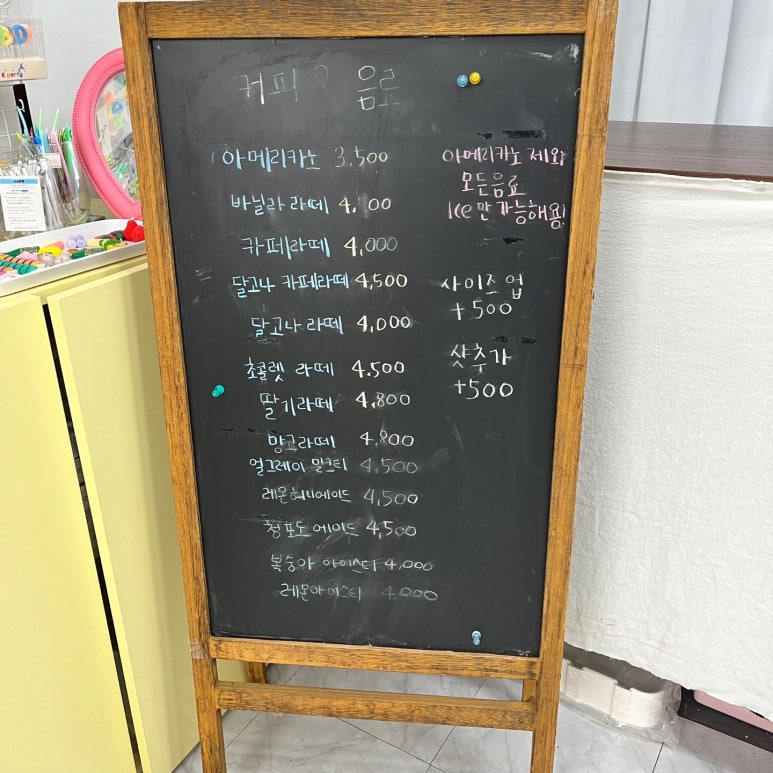 커피 & 음료
아메리카노 3.500
바닐라 라떼
카페라떼 4,000
달고나 카페라떼 4,500
달고나 라떼 4,000
초콜렛 라떼 4.500
딸기라떼 4,800
망고라떼 4,800
얼그레이 밀크티 4,500
레몬허니에이드 4,500
청포도 에이드 4,500
복숭아 아이스티 4,000
레몬아이스티 4,000
아메리카노 제외
모든음료
ice 만 가능해용!
사이즈 업
+500
샷추가
+500